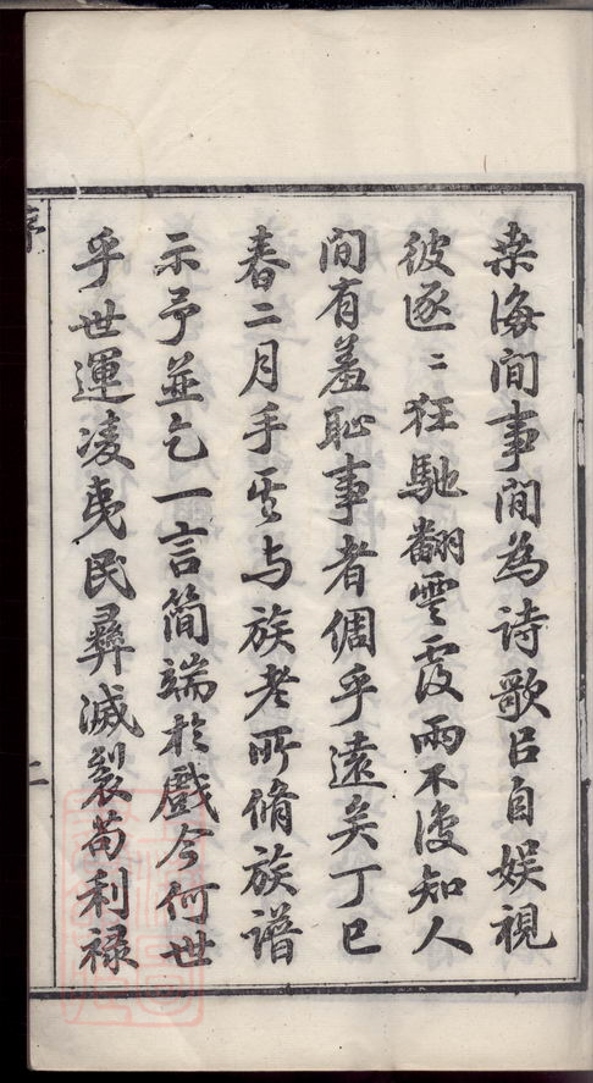 桒海间事间為诗歌㠯自娱視
彼逐〻狂馳翻雲覆雨不復知人
间有羞恥事者倜乎遠矣丁巳
春二月手其与族老所脩族谱
示予並乞一言简端於戲今何世
乎世運凌夷民彝滅裂苟利禄
序
二